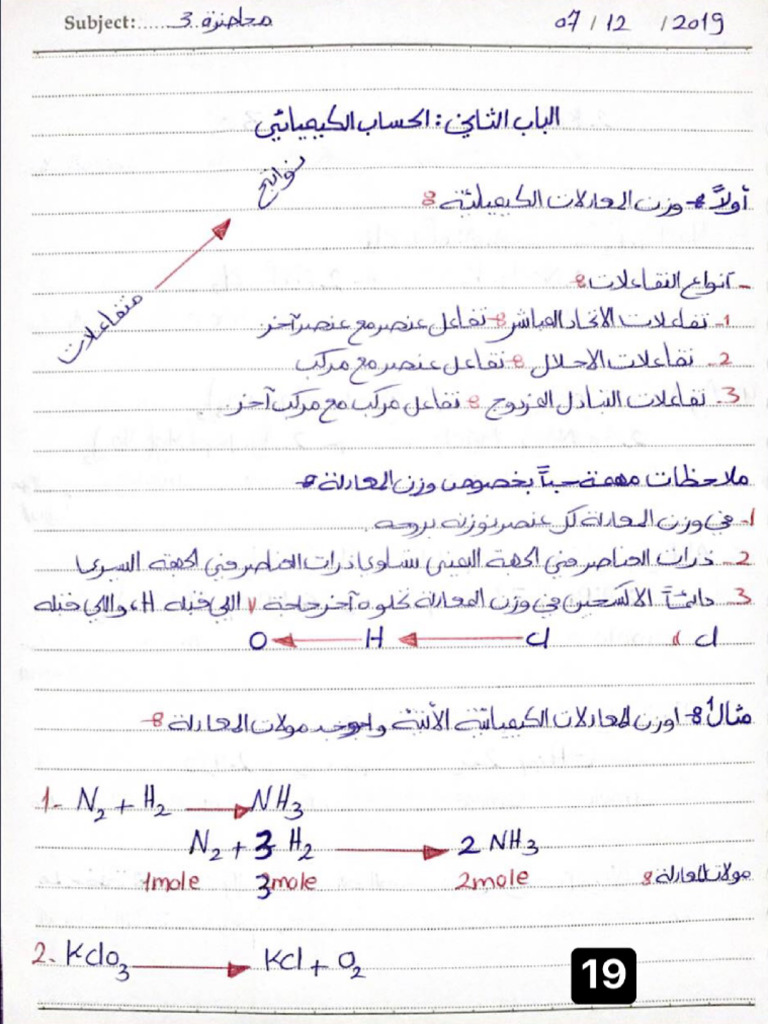 Subject:......محاضرة 3 07 / 12 / 2019
الباب الثاني : الحساب الكيميائي
أولاً :- وزن المعادلات الكيميائية :
نواتج
متفاعلات
- أنواع التفاعلات :
1- تفاعلات الاتحاد المباشر :- تفاعل عنصر مع عنصر آخر.
2- تفاعلات الاحلال :- تفاعل عنصر مع مركب
3- تفاعلات التبادل المزدوج :- تفاعل مركب مع مركب آخر.
ملاحظات مهمة جباً بخصوص وزن المعادلة :-
1- في وزن المعادلة كل عنصر نوزنه بروحه.
2- ذرات العناصر في الجهة اليمنى تساوي ذرات العناصر في الجهة اليسرى
3- دائماً الاكسجين في وزن المعادلة نخلوه آخر حاجة / اللي قبله H، واللي قبله
Cl ، Cl → H → O
مثال1 :- اوزن المعادلات الكيميائية الأتية واوجد مولات المعادلة :-
1- N₂ + H₂ → NH₃
N₂ + 3 H₂ → 2 NH₃
مولات المعادلة : 1mole 3mole 2mole
2- KClO₃ → KCl + O₂
19